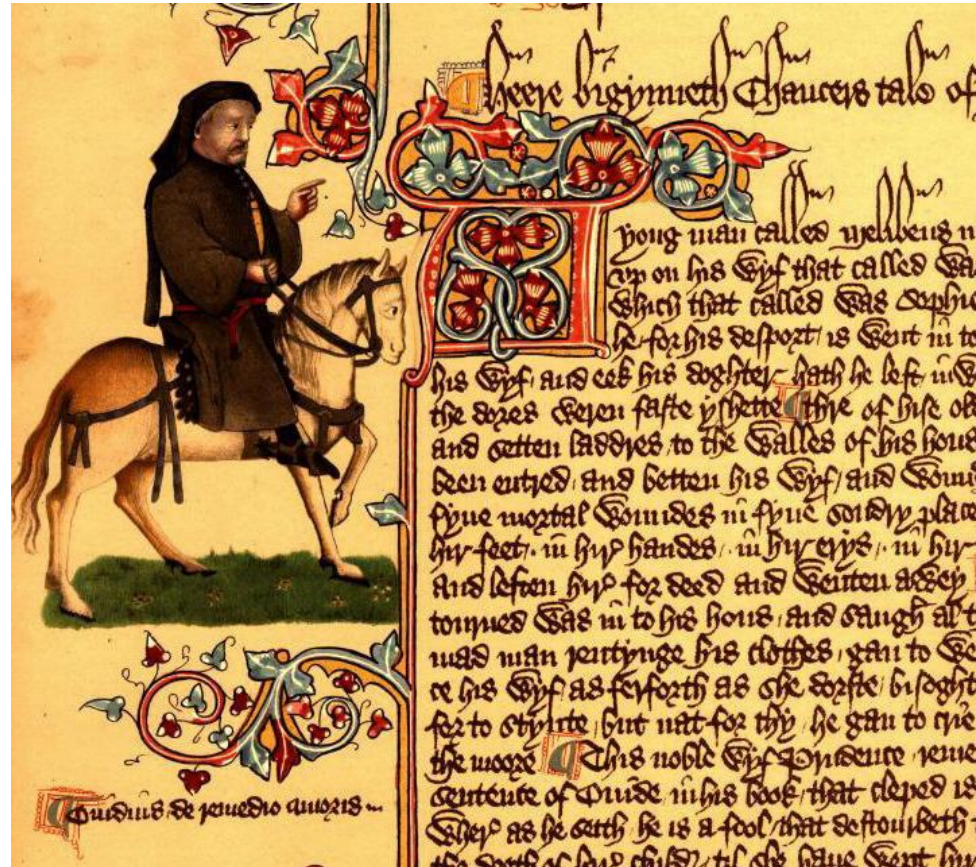 Heere bigynneth Chaucers tale of
A yong man called melibeus
vp on his wyf that called
which that called was
he for his desport is went in to
his wyf and eek his doghter hath he left
the dores weren faste yshette thre of hise
and setten laddres to the walles of his hous
been entred and betten his wyf and
fyue mortal woundes in fyue sondry place
hir feet in hir handes in hir erys in hir
and leften hir for deed and wenten awey
tourned was in to his hous and saugh al
mad man rentynge his clothes gan to
ce his wyf as ferforth as she dorste bisoght
for to stynte but nat for thy he gan to crie
the moore This noble wyf Prudence
sentence of Ouide in his book that cleped is
wher as he seith he is a fool that destourbeth
the deeth of hir child til she haue wept
Ouidius de remedio amoris